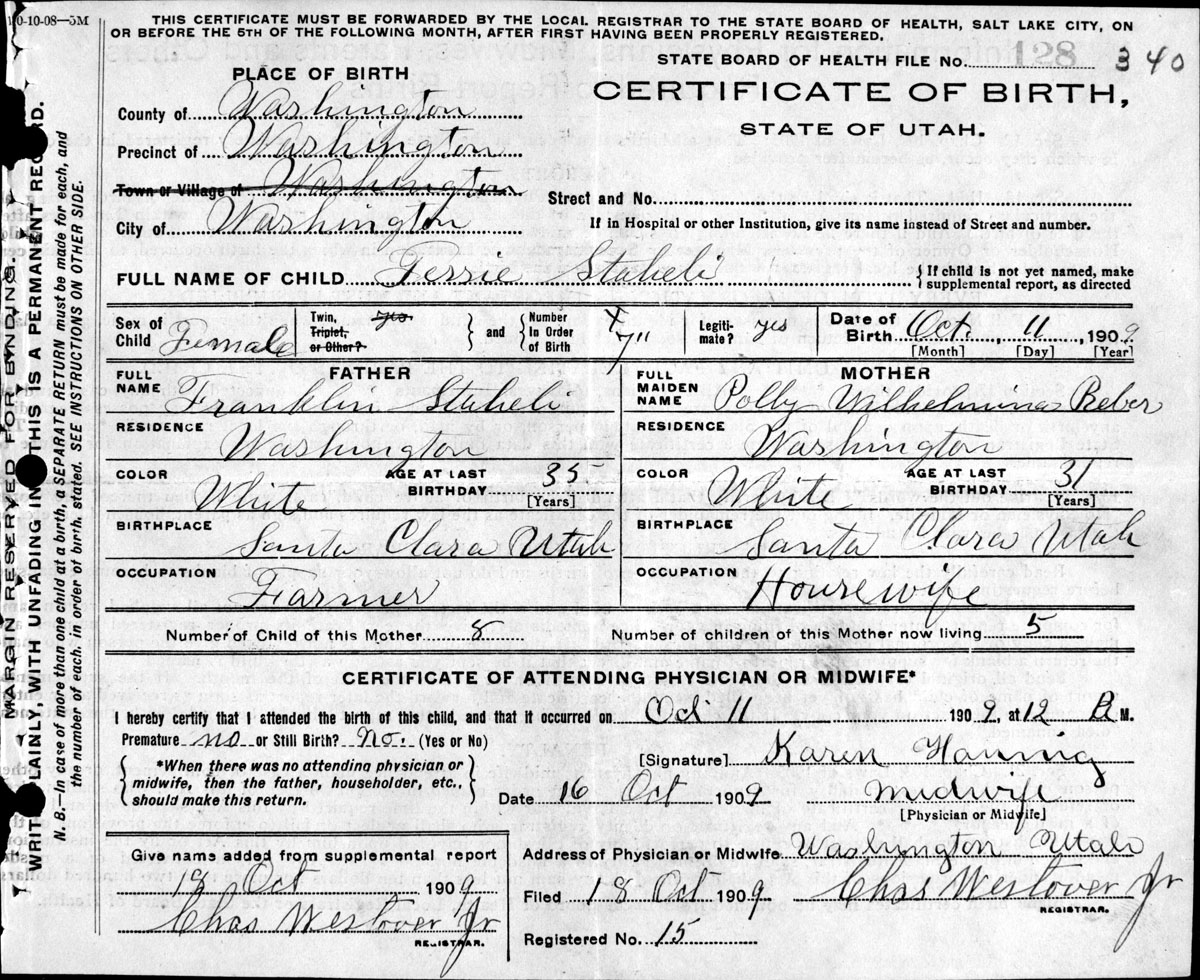 0-10-08—5M
THIS CERTIFICATE MUST BE FORWARDED BY THE LOCAL REGISTRAR TO THE STATE BOARD OF HEALTH, SALT LAKE CITY, ON
OR BEFORE THE 5TH OF THE FOLLOWING MONTH, AFTER FIRST HAVING BEEN PROPERLY REGISTERED.
STATE BOARD OF HEALTH FILE NO. 128 340
CERTIFICATE OF BIRTH,
STATE OF UTAH.
PLACE OF BIRTH
County of Washington
Precinct of Washington
Town or Village of Washington
City of Washington
Street and No.
If in Hospital or other Institution, give its name instead of Street and number.
FULL NAME OF CHILD Ferrie Staheli { If child is not yet named, make
supplemental report, as directed
Sex of Child Female
Twin, Triplet, or Other? } and { Number In Order of Birth
Legiti-mate? yes
Date of Birth Oct. 11, 1909
[Month] [Day] [Year]
FATHER
FULL NAME Franklin Staheli
RESIDENCE Washington
COLOR White AGE AT LAST BIRTHDAY 35 [Years]
BIRTHPLACE Santa Clara Utah
OCCUPATION Farmer
MOTHER
FULL MAIDEN NAME Polby Wilhelmina Reber
RESIDENCE Washington
COLOR White AGE AT LAST BIRTHDAY 31 [Years]
BIRTHPLACE Santa Clara Utah
OCCUPATION Housewife
Number of Child of this Mother 8 Number of children of this Mother now living 5
CERTIFICATE OF ATTENDING PHYSICIAN OR MIDWIFE*
I hereby certify that I attended the birth of this child, and that it occurred on Oct 11 1909, at 12 M.
Premature no or Still Birth? No. (Yes or No)
{ *When there was no attending physician or
midwife, then the father, householder, etc.,
should make this return. }
[Signature] Karen Hanning
Date 16 Oct 1909 Midwife
[Physician or Midwife]
Give name added from supplemental report
18 Oct 1909
Chas Westover Jr
REGISTRAR.
Address of Physician or Midwife Washington Utah
Filed 18 Oct 1909 Chas Westover Jr
REGISTRAR.
Registered No. 15
MARGIN RESERVED FOR BINDING
WRITE PLAINLY, WITH UNFADING IN THIS IS A PERMANENT RECORD.
N. B.—In case of more than one child at a birth, a SEPARATE RETURN must be made for each, and
the number of each, in order of birth, stated. SEE INSTRUCTIONS ON OTHER SIDE.